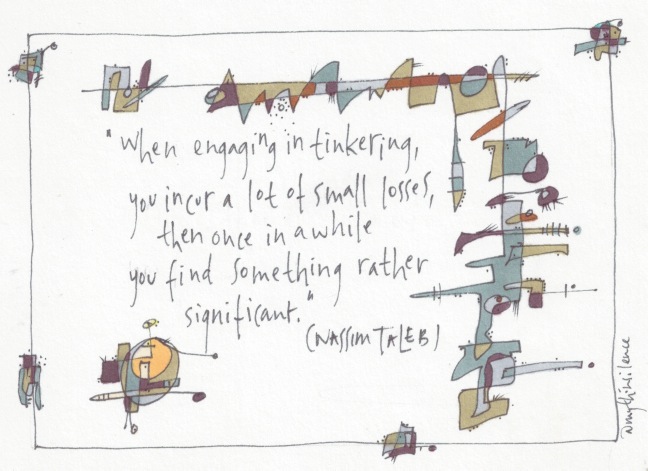 "When engaging in tinkering,
you incur a lot of small losses,
then once in a while
you find something rather
significant."
(NASSIM TALEB)